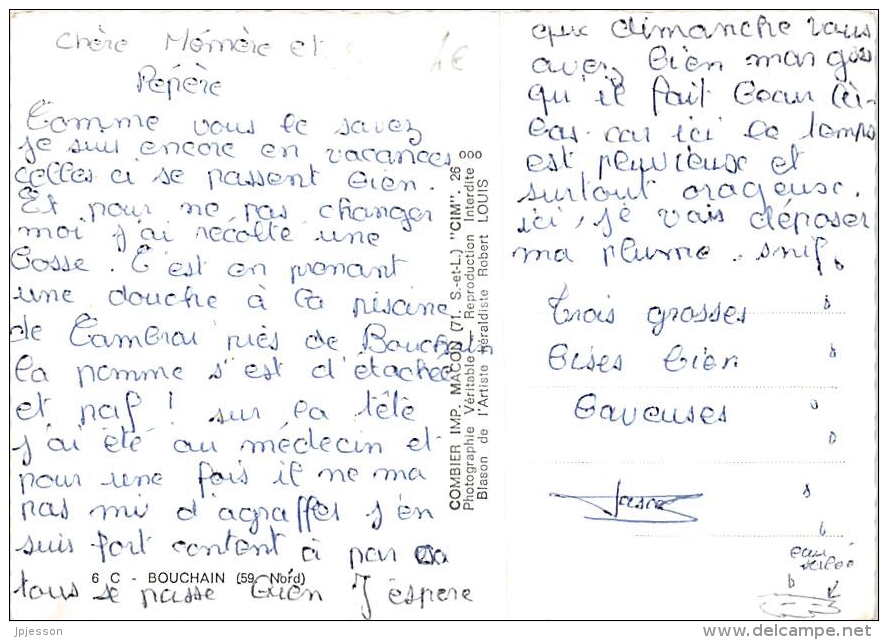 Chère Mémère et
Pépère
Comme vous le savez
je suis encore en vacances
celles ci se passent bien.
Et pour ne pas changer
moi j'ai récolté une
bosse. C'est en prenant
une douche à la piscine
de Cambrai près de Bouchain
la pomme s'est d'étachée
et paf! sur la tête
j'ai été au médecin et
pour une fois il ne ma
pas mis d'agraffes j'en
suis fort content à par ça
tous se passe bien J'espere
6 C - BOUCHAIN (59. Nord)
COMBIER IMP. MACON (71. S.-et-L.) "CIM". 26 ooo
Photographie Véritable - Reproduction Interdite
Blason de l'Artiste Héraldiste Robert LOUIS
que dimanche vous
avez bien mangés
qu'il fait beau là-
bas. car ici le temps
est pluvieuse et
surtout orageuse.
ici, je vais déposer
ma plume. snif.
Trois grosses
bises bien
baveuses
eau
salée
jpjesson
www.delcampe.net